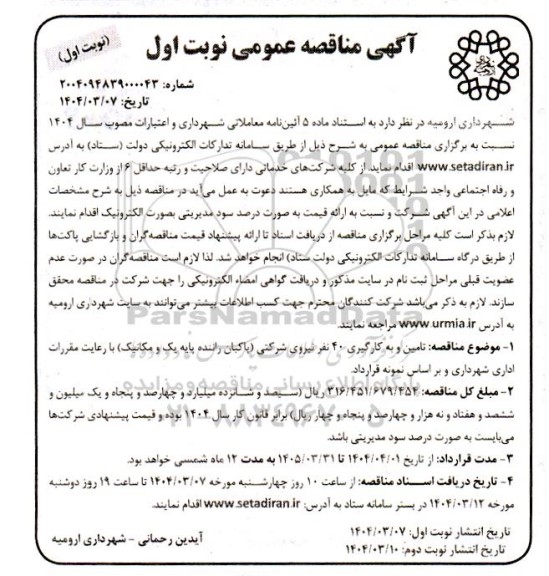 آگهی مناقصه عمومی نوبت اول
(نوبت اول)
شماره: ۲۰۰۴۰۹۴۸۳۹۰۰۰۰۴۳
تاریخ: ۱۴۰۴/۰۳/۰۷
شهرداری ارومیه در نظر دارد به استناد ماده ۵ آئین‌نامه معاملاتی شهرداری و اعتبارات مصوب سال ۱۴۰۴
نسبت به برگزاری مناقصه عمومی به شرح ذیل از طریق سامانه تدارکات الکترونیکی دولت (ستاد) به آدرس
www.setadiran.ir اقدام نماید. از کلیه شرکت‌های خدماتی دارای صلاحیت و رتبه حداقل ۶ از وزارت کار تعاون
و رفاه اجتماعی واجد شرایط که مایل به همکاری هستند دعوت به عمل می‌آید در مناقصه ذیل به شرح مشخصات
اعلامی در این آگهی شرکت و نسبت به ارائه قیمت به صورت درصد سود مدیریتی بصورت الکترونیک اقدام نمایند.
لازم بذکر است کلیه مراحل برگزاری مناقصه از دریافت اسناد تا ارائه پیشنهاد قیمت مناقصه‌گران و بازگشایی پاکت‌ها
از طریق درگاه سامانه تدارکات الکترونیکی دولت ستاد) انجام خواهد شد. لذا لازم است مناقصه‌گران در صورت عدم
عضویت قبلی مراحل ثبت نام در سایت مذکور و دریافت گواهی امضاء الکترونیکی را جهت شرکت در مناقصه محقق
سازند. لازم به ذکر می‌باشد شرکت کنندگان محترم جهت کسب اطلاعات بیشتر می‌توانند به سایت شهرداری ارومیه
به آدرس www.urmia.ir مراجعه نمایند.
۱- موضوع مناقصه: تامین و به کارگیری ۴۰ نفر نیروی شرکتی (پاکبان، راننده پایه یک و مکانیک) با رعایت مقررات
اداری شهرداری و بر اساس نمونه قرارداد.
۲- مبلغ کل مناقصه: ۳۱۶/۴۵۱/۶۷۹/۴۵۴ ریال (سیصد و شانزده میلیارد و چهارصد و پنجاه و یک میلیون و
ششصد و هفتاد و نه هزار و چهارصد و پنجاه و چهار ریال) برابر قانون کار سال ۱۴۰۴ بوده و قیمت پیشنهادی شرکت‌ها
می‌بایست به صورت درصد سود مدیریتی باشد.
۳- مدت قرارداد: از تاریخ ۱۴۰۴/۰۴/۰۱ تا ۱۴۰۵/۰۳/۳۱ به مدت ۱۲ ماه شمسی خواهد بود.
۴- تاریخ دریافت اسناد مناقصه: از ساعت ۱۰ روز چهارشنبه مورخه ۱۴۰۴/۰۳/۰۷ تا ساعت ۱۹ روز دوشنبه
مورخه ۱۴۰۴/۰۳/۱۲ در بستر سامانه ستاد به آدرس: www.setadiran.ir اقدام نمایند.
تاریخ انتشار نوبت اول: ۱۴۰۴/۰۳/۰۷
تاریخ انتشار نوبت دوم: ۱۴۰۴/۰۳/۱۰
آیدین رحمانی - شهرداری ارومیه
ParsNamadData
پایگاه اطلاع رسانی مناقصه و مزایده
۰۲۱-۸۸۳۴۹۶۷۰-۵